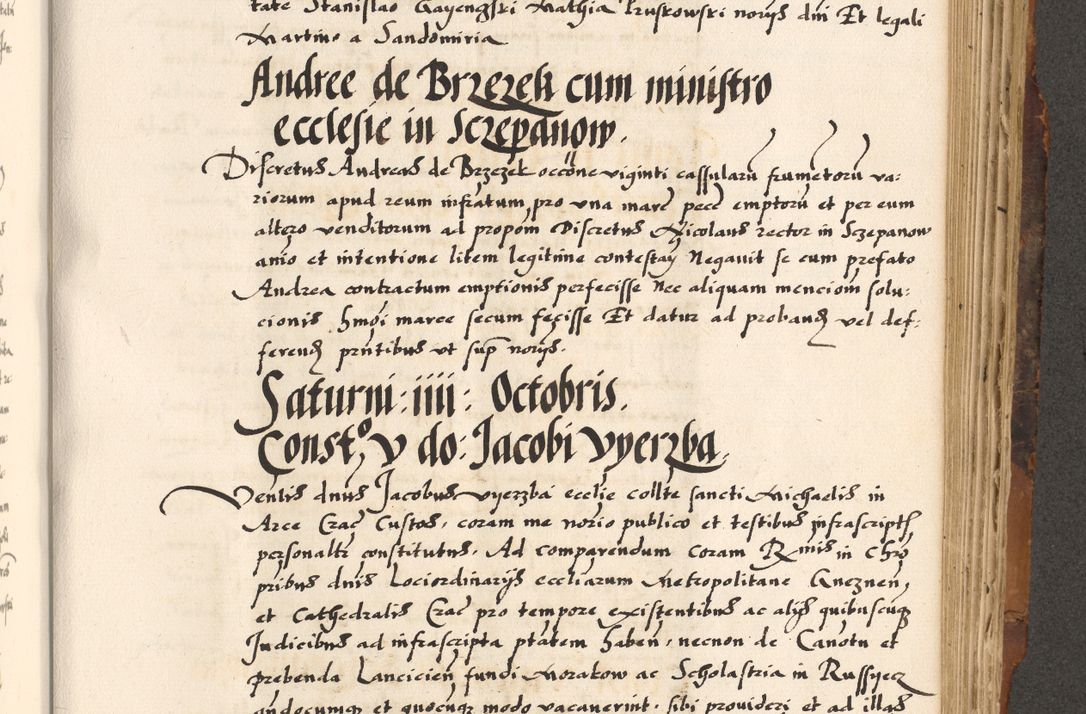 tate Stanislao Gayengski Mathia Pruskowski norijs dni Et legali
Martino a Sandomiria
Andree de Brzezek cum ministro
ecclesie in Sczepanow.
Discretus Andreas de Brzezek occōne viginti cassularū frumētorū va:
riorum apud reum infratum pro vna marc̄ pecc̄ emptorū et per eum
altero venditorum ad propom̄ Discretus Nicolaus rector in Sczepanow
anīo et intentione litem legitime contestan̄ Negauit se cum prefato
Andrea contractum emptionis perfecisse Nec aliquam mencioīn solu:
cionis hmōi marce secum fecisse Et datur ad proband̄ vel def:
ferend̄ pn̄tibus vt sup̄ norijs.
Saturni: iiii: Octobris.
Constᵒ, v do: Jacobi vyerzba,
Venlis dnus Jacobus vyerzba eccl̄ie coll̄te sancti Michaelis in
Arce Crac̄ Custos, coram me norio publico et testibus infrascript̄
personalr̄ constitutus. Ad comparendum coram Rmis in chrō
pribus dnis Lociordinarijs ecclīarum Metropolitane Gneznen̄,
et Cathedralis Crac̄ pro tempore existentibus ac alijs quibuscūq
Judicibus ad infrascripta ptātem haben̄, necnon de Canotu et
prebenda Lancicien̄ fundi Morakow ac Scholastria in Russyecz
andocumq et quocūq modo vacauerint, sibi prouideri et ad illas